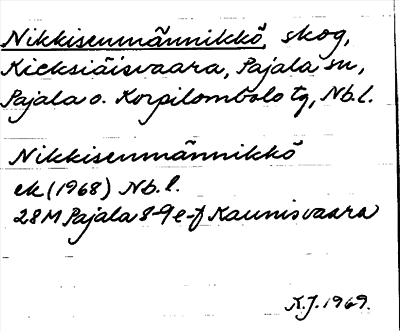 Nikkisenmännikkö, skog,
Kieksiäisvaara, Pajala sn,
Pajala o. Korpilombolo tg, Nb.l.
Nikkisenmännikkö
ek (1968) Nb.l.
28M Pajala 8-9e-f Kaunisvaara
K.J. 1969.